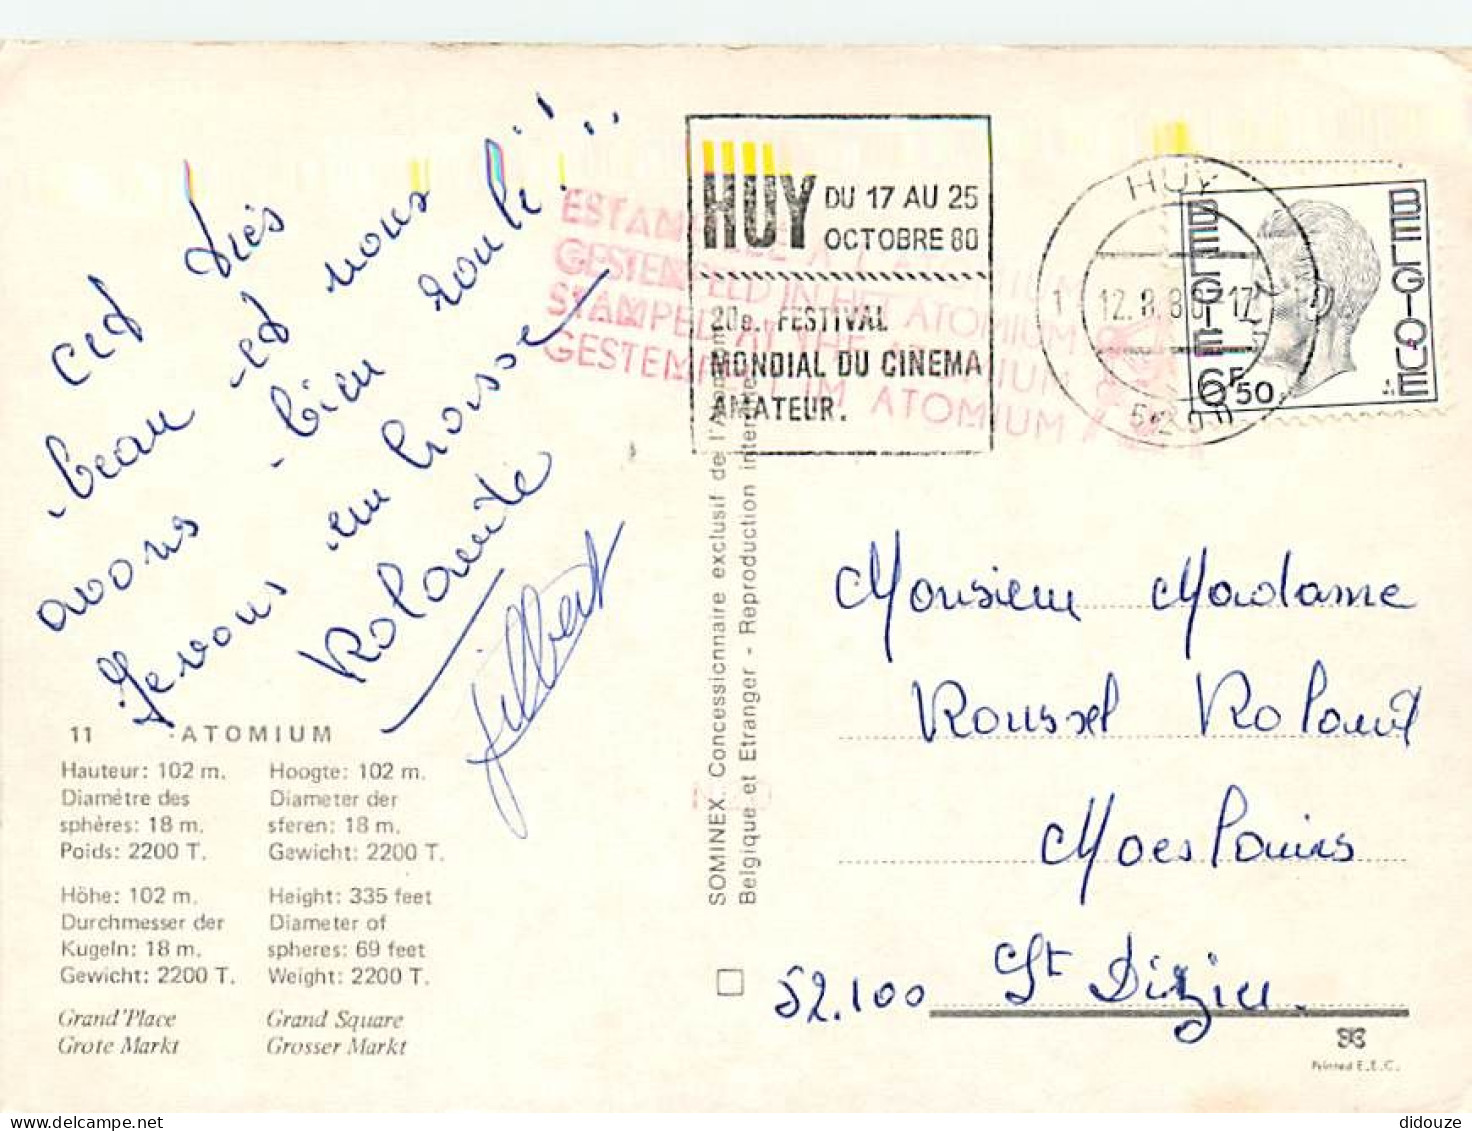 cet très
beau et nous
avons bien roulé!..
Gerons en Crosse
Rolande
gilbert
11 ATOMIUM
Hauteur: 102 m.
Diamétre des
sphères: 18 m.
Poids: 2200 T.
Hoogte: 102 m.
Diameter der
sferen: 18 m.
Gewicht: 2200 T.
Höhe: 102 m.
Durchmesser der
Kugeln: 18 m.
Gewicht: 2200 T.
Height: 335 feet
Diameter of
spheres: 69 feet
Weight: 2200 T.
Grand'Place
Grote Markt
Grand Square
Grosser Markt
SOMINEX. Concessionnaire exclusif de l'Atomium
Belgique et Etranger - Reproduction interdite
HUY DU 17 AU 25
OCTOBRE 80
20e. FESTIVAL
MONDIAL DU CINEMA
AMATEUR.
ESTAMPILLE A L'ATOMIUM
GESTEMPELD IN HET ATOMIUM
STAMPED AT THE ATOMIUM
GESTEMPELT IM ATOMIUM
HUY
1 12.8.80-17
5200
BELGIE
BELGIQUE
6F50
Monsieur Madame
Roussel Roland
Moeslains
52.100 St Dizier.
Printed E.E.C.
didouze